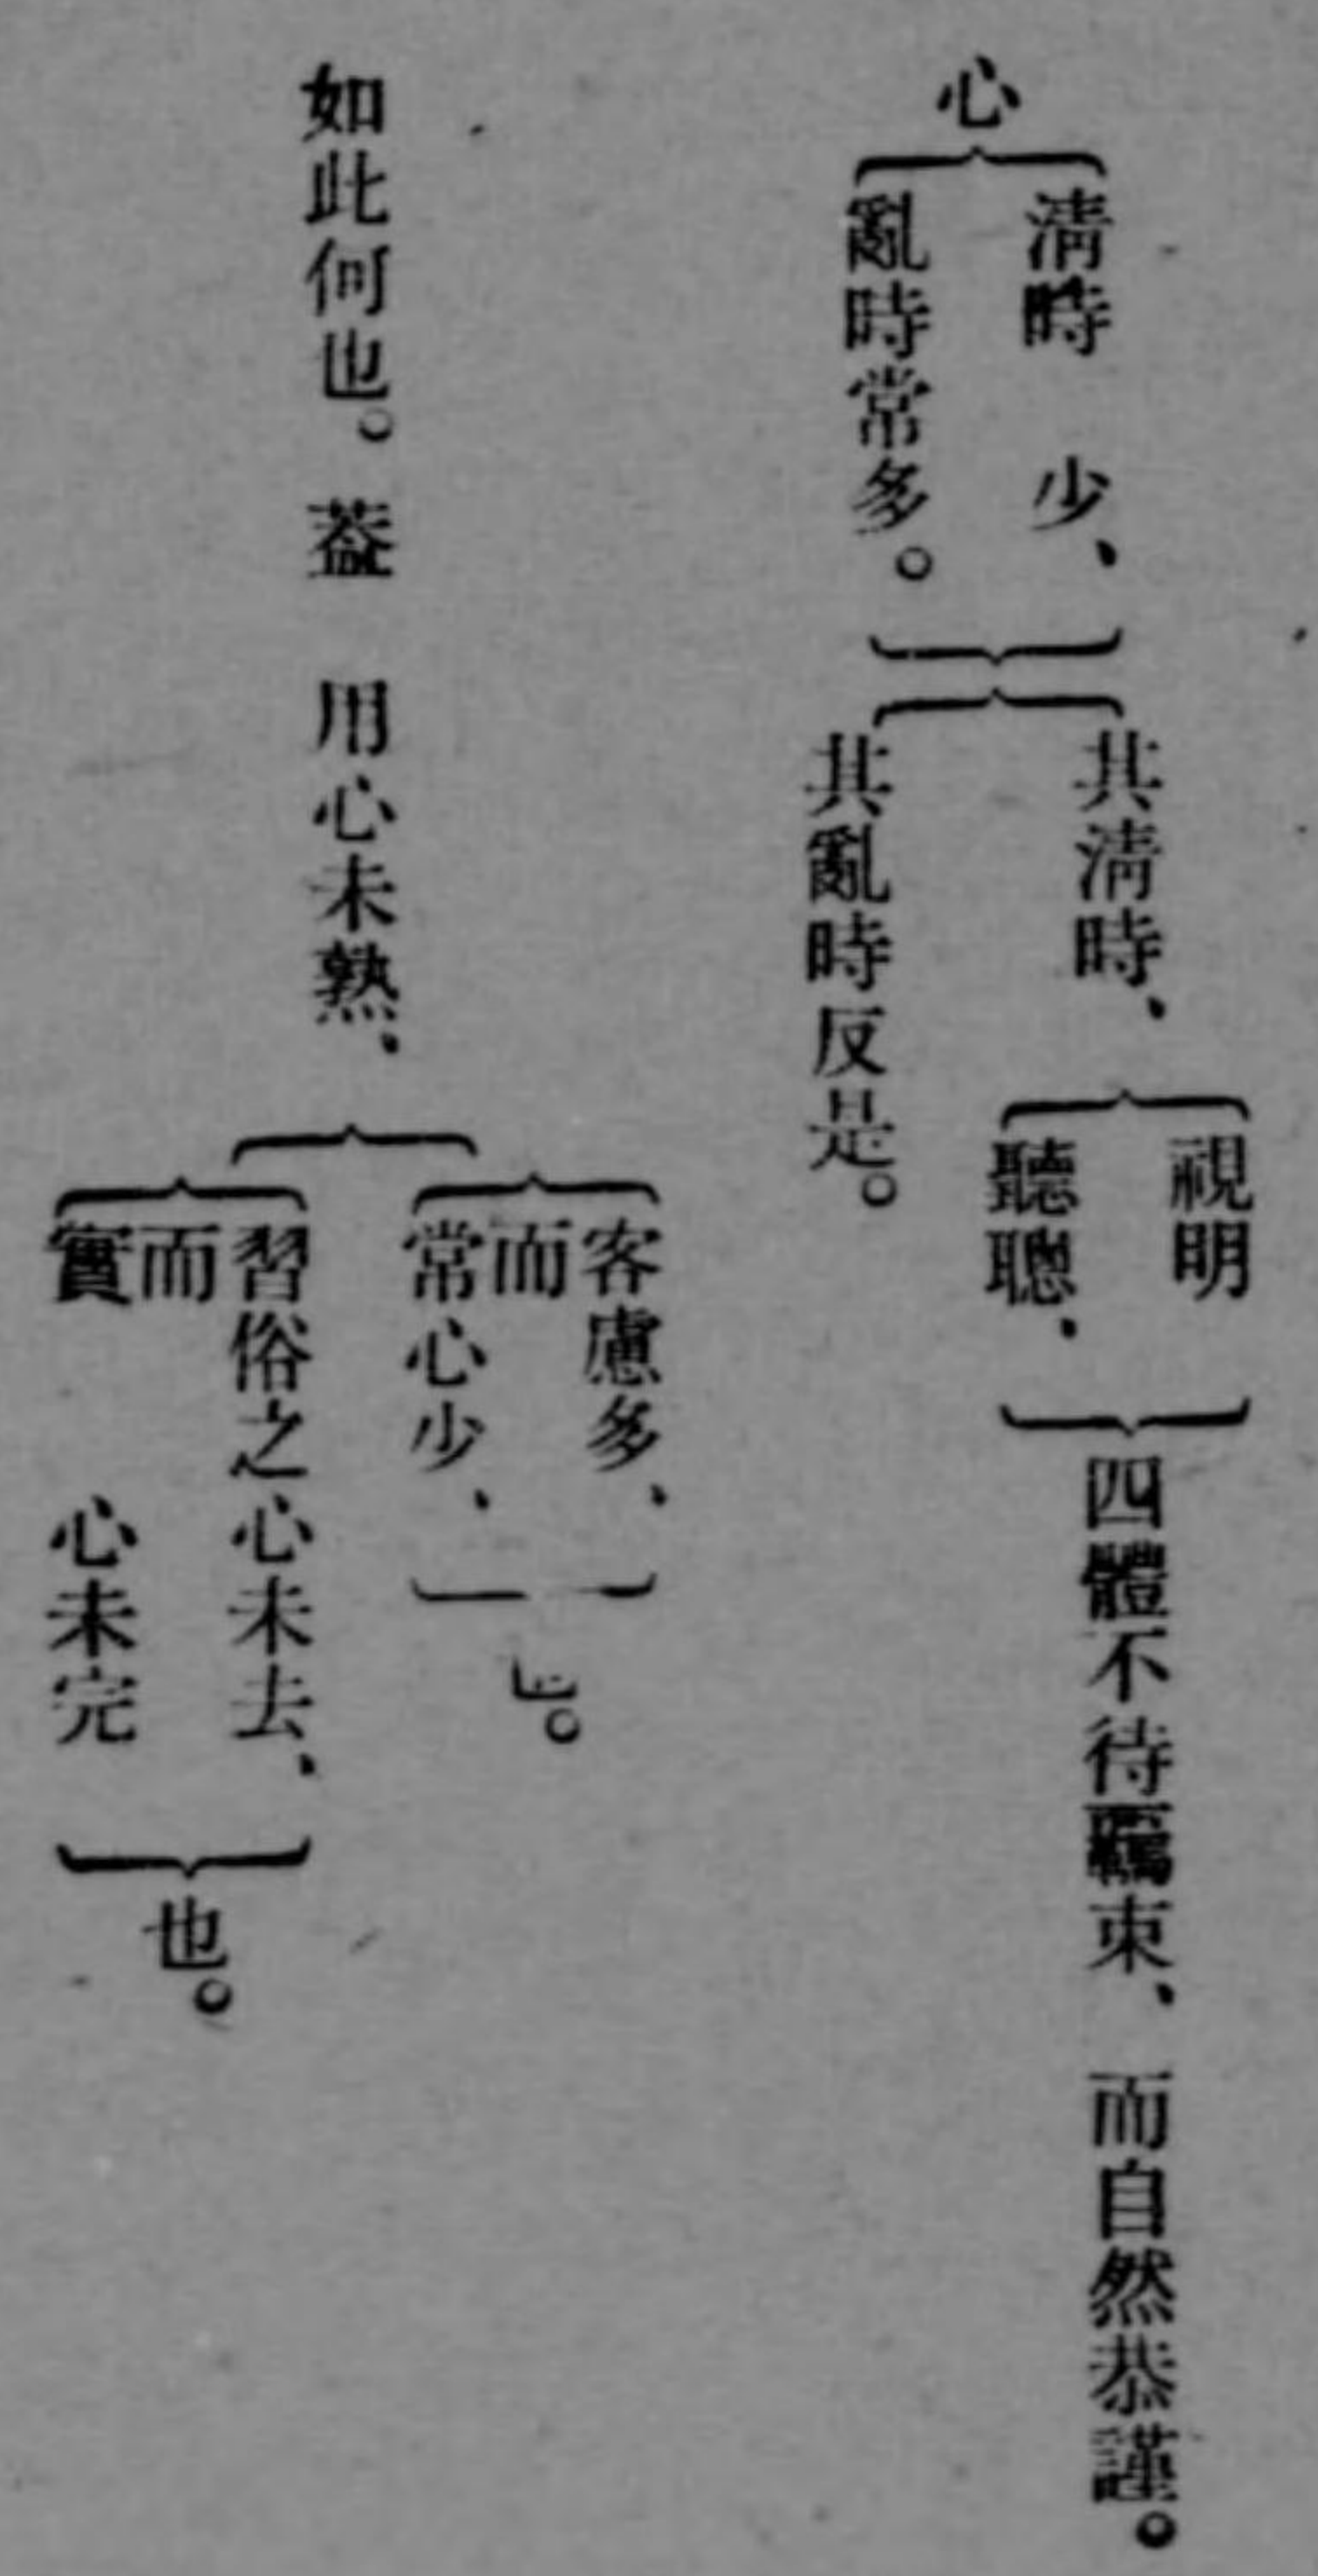 心
淸時 少、
亂時常多。
其淸時、
視明
聽聰、
四體不待羈束、而自然恭謹。
其亂時反是。
如此何也。蓋 用心未熟、
客慮多、
而
常心少、
也。
習俗之心未去、
而
實 心未完
也。